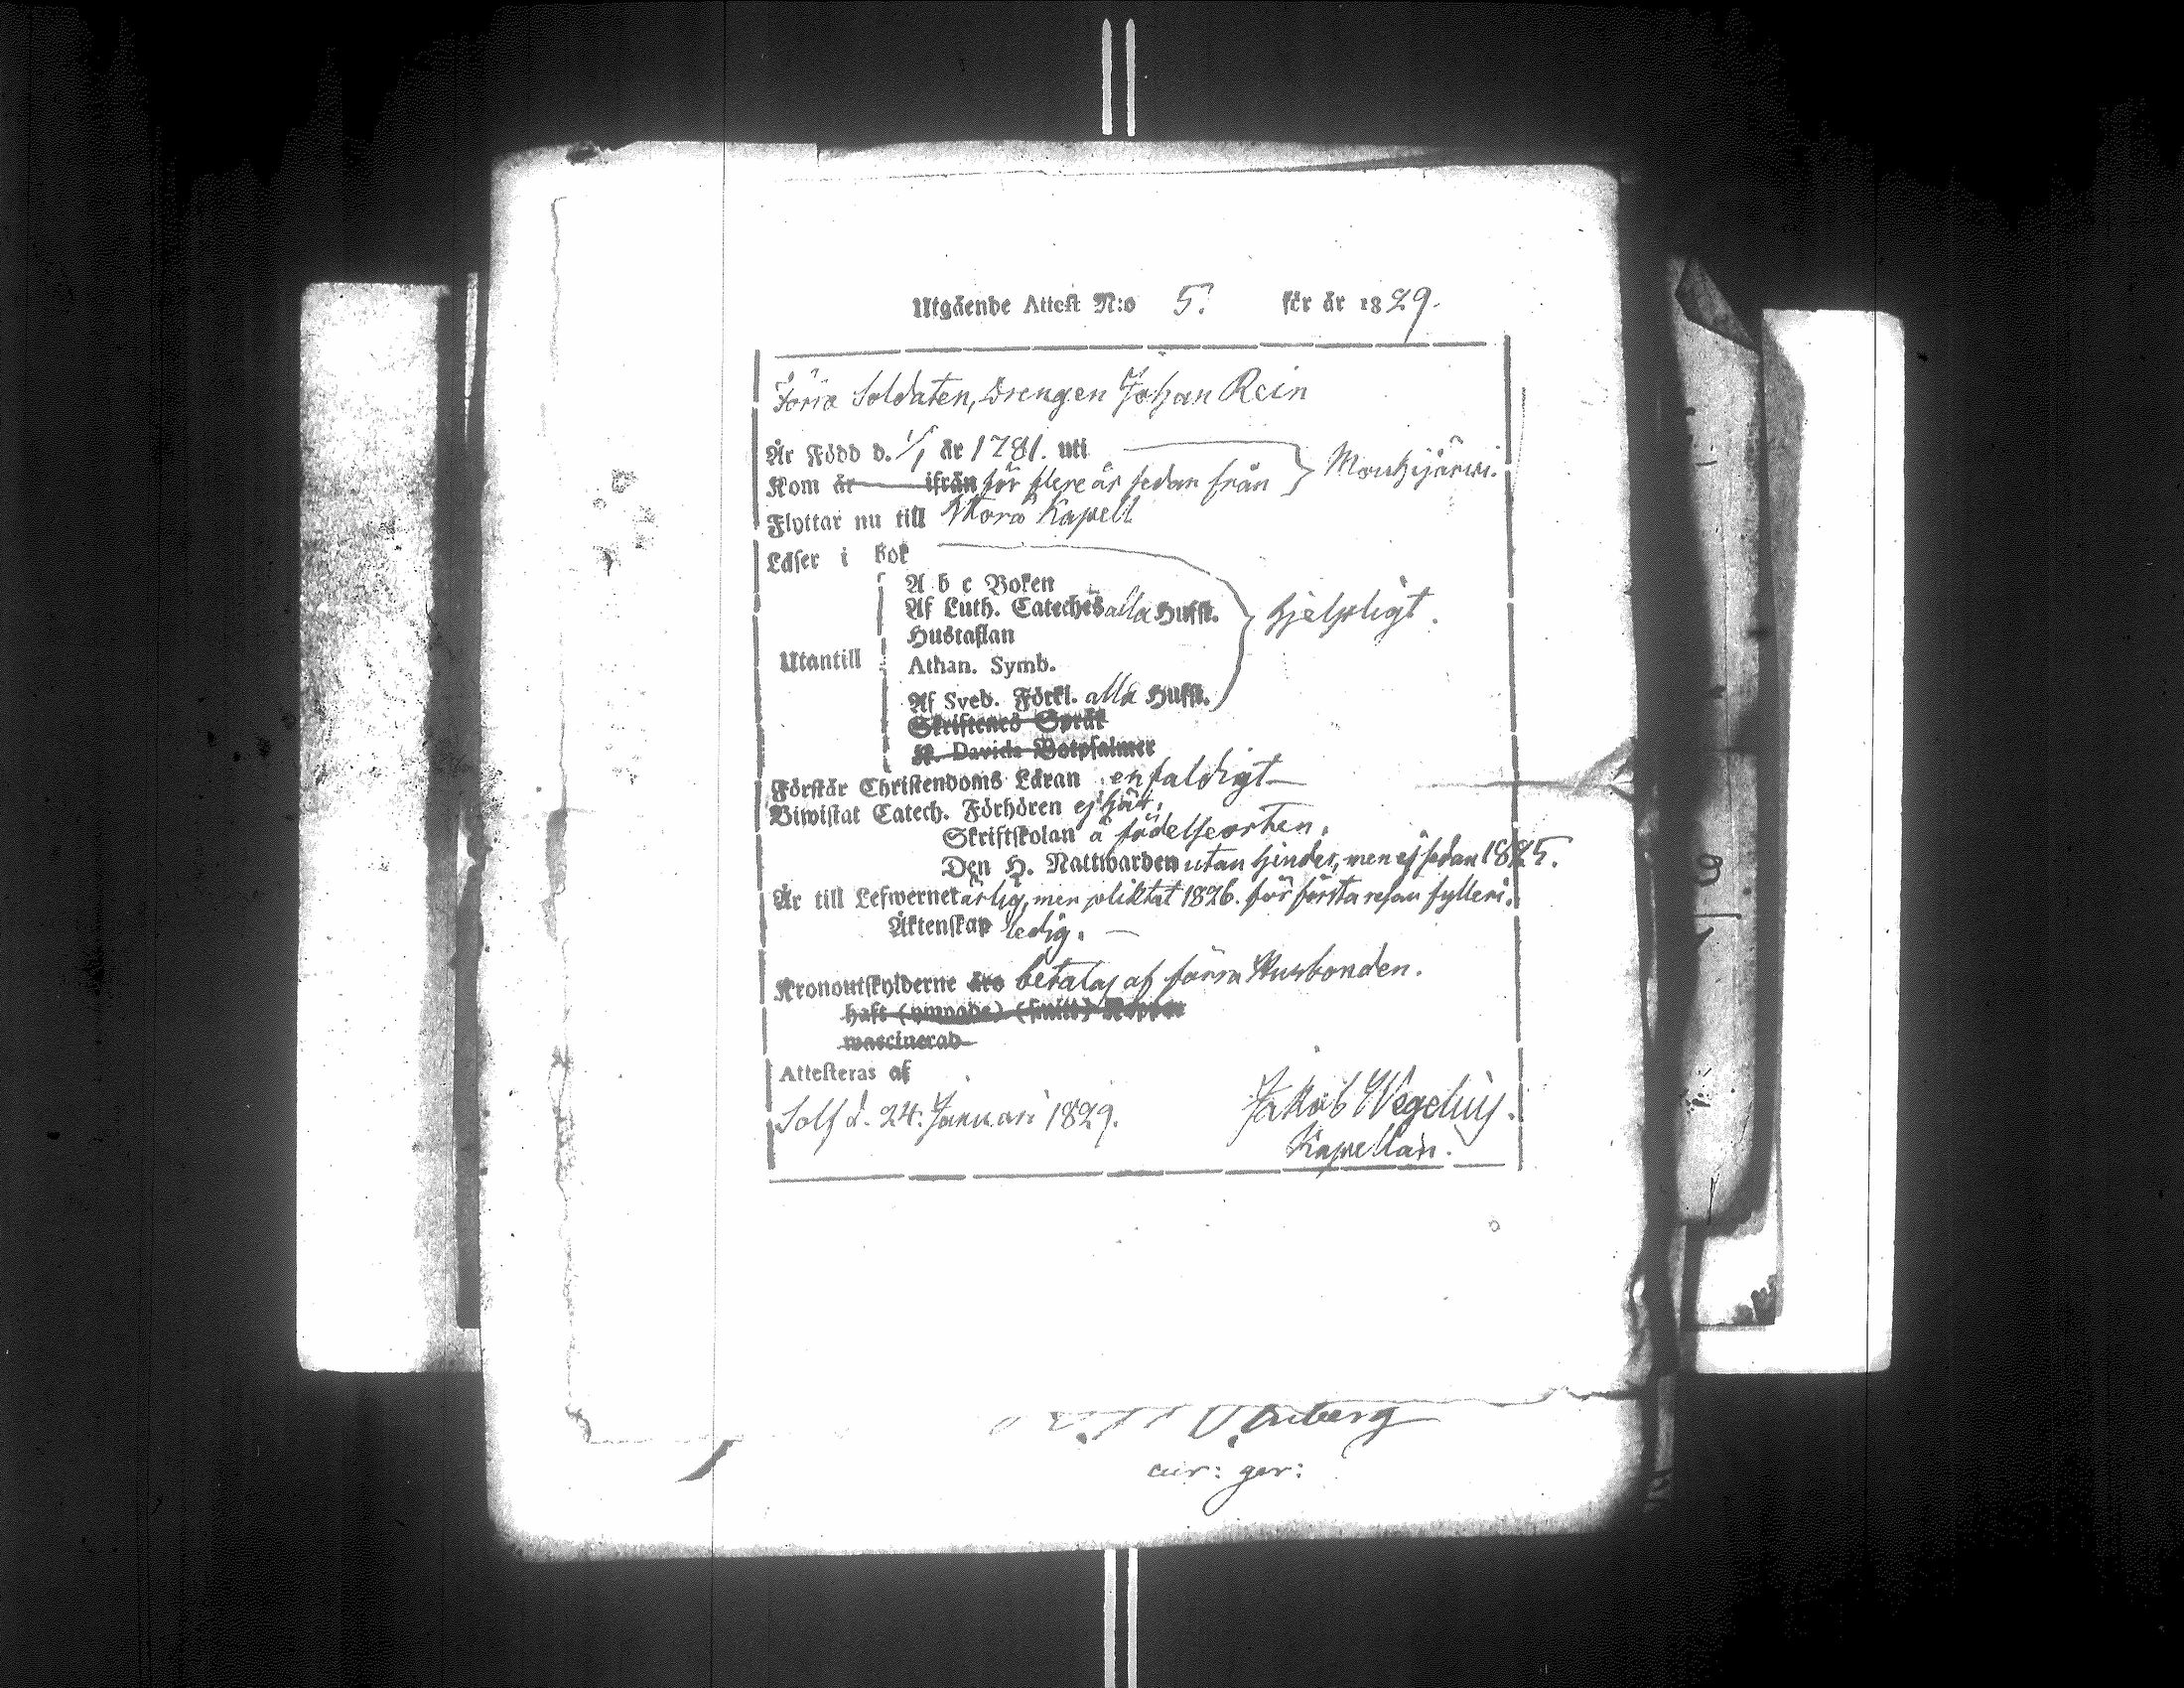 Utgående Attest N:o 5. för år 1829.
Förra Soldaten, Drengen Johan Rein
År Född d. 1/1 år 1781. uti
Kom år ifrån för flere år sedan från Mouhijärwi.
Flyttar nu till Kapell
Läser i Bok
A b c Boken
Af Luth. Cateches alla Hufst.
Hustaflan
Utantill
Athan. Symb.
hjelpligt.
Af Sveb. Förkl. alla Hufst.
Skriftenes Språk
K. Davids Botpsalmer
Förstår Christendoms Läran enfaldigt
Biwistat Catech. Förhören ej här,
Skriftskolan å födelseorten,
Den H. Nattwarden utan hinder, men ej sedan 1825.
Är till Lefwernet ärlig, men pliktat 1826. för första resan fylleri,
Äktenskap ledig.
Kronoutskylderne äro betalas af förra Husbonden.
haft (ympade) Koppor
waccinerad
Attesteras af
Solf d. 24. Januari 1829.
Jakob Wegelius.
Kapellan.
cur: ger: